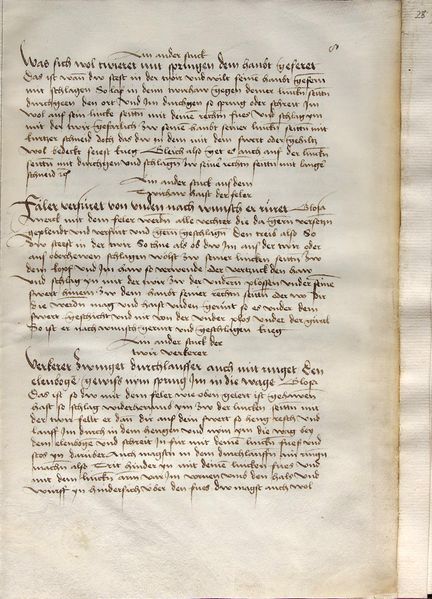 28
Ain ander stuck
Was sich wol twieret mit springen dem haubt geferet
Das ist wann dw stest in der twir und wilt seinem haubt gefern
mit schlagen So lass in dem zwirhaw gegen deiner lincken seitten
durchgeen den ort und Im durchgen so spring oder schreit Im
wol auf sein lincke seitten mit deinem rechten fues und schlag ym
mit der twir gefärlich zw seinem haubt seiner lincken seitten mit
kurtzer schneid doch das dw in dem mit dem swert oder gehiltz
wol bedeckt seiest Gleich also get es auch auf der lincken
seitten mit durchgen und schlagen zw seiner rechten seitten mit langer
schneid
Ain ander stuck aus dem
Twirhaw haist der feler
Fäler verfüret von unden nach wunsch er rüret Glosa
Merck mit dem feler werden alle vechter die da gern versetzen
geplendt und verfürt und geschlagen Den treib also So
dw stest in der twir So thue als ob dw Im aus der twir oder
aus oberhewen schlagen wölst zw seiner lincken seitten zw
dem kopf und Im haw so verwende Der verzuck den haw
und schlag yn mit der twir zw der undern plossen under seinem
swert hinein zw dem haubt seiner rechten seitten Der wo dir
die werden mag und hast unden gerürt so es under dem
swert geschicht und nit von der under plos under der gürtel
So ist er nach wunsch gerürt und geschlagen
Ain ander stuck der
twir verkerer
Verkerer dwinget durchlauffer auch mit ringet Den
elenboge gewiss nym spring Im in die wage Glosa
Das ist so dw mit dem feler wie oben gelert ist gehawen
hast so schlag widerumb yn zw der lincken seitten mit
der twir felt er dan dir auf dem swert so verker und
lauff Im durch in dem hengen und nym ym die wag bey
dem elenboge und schreit In für mit deinem lincken fues und
stos yn darüber Auch magstu in dem durchlauffen ain ringen
machen also Trit hinder yn mit deinem lincken fues und
mit dem lincken arm var Im vornen umb den hals und
wirff yn hindersich über den fues dw magst auch wol